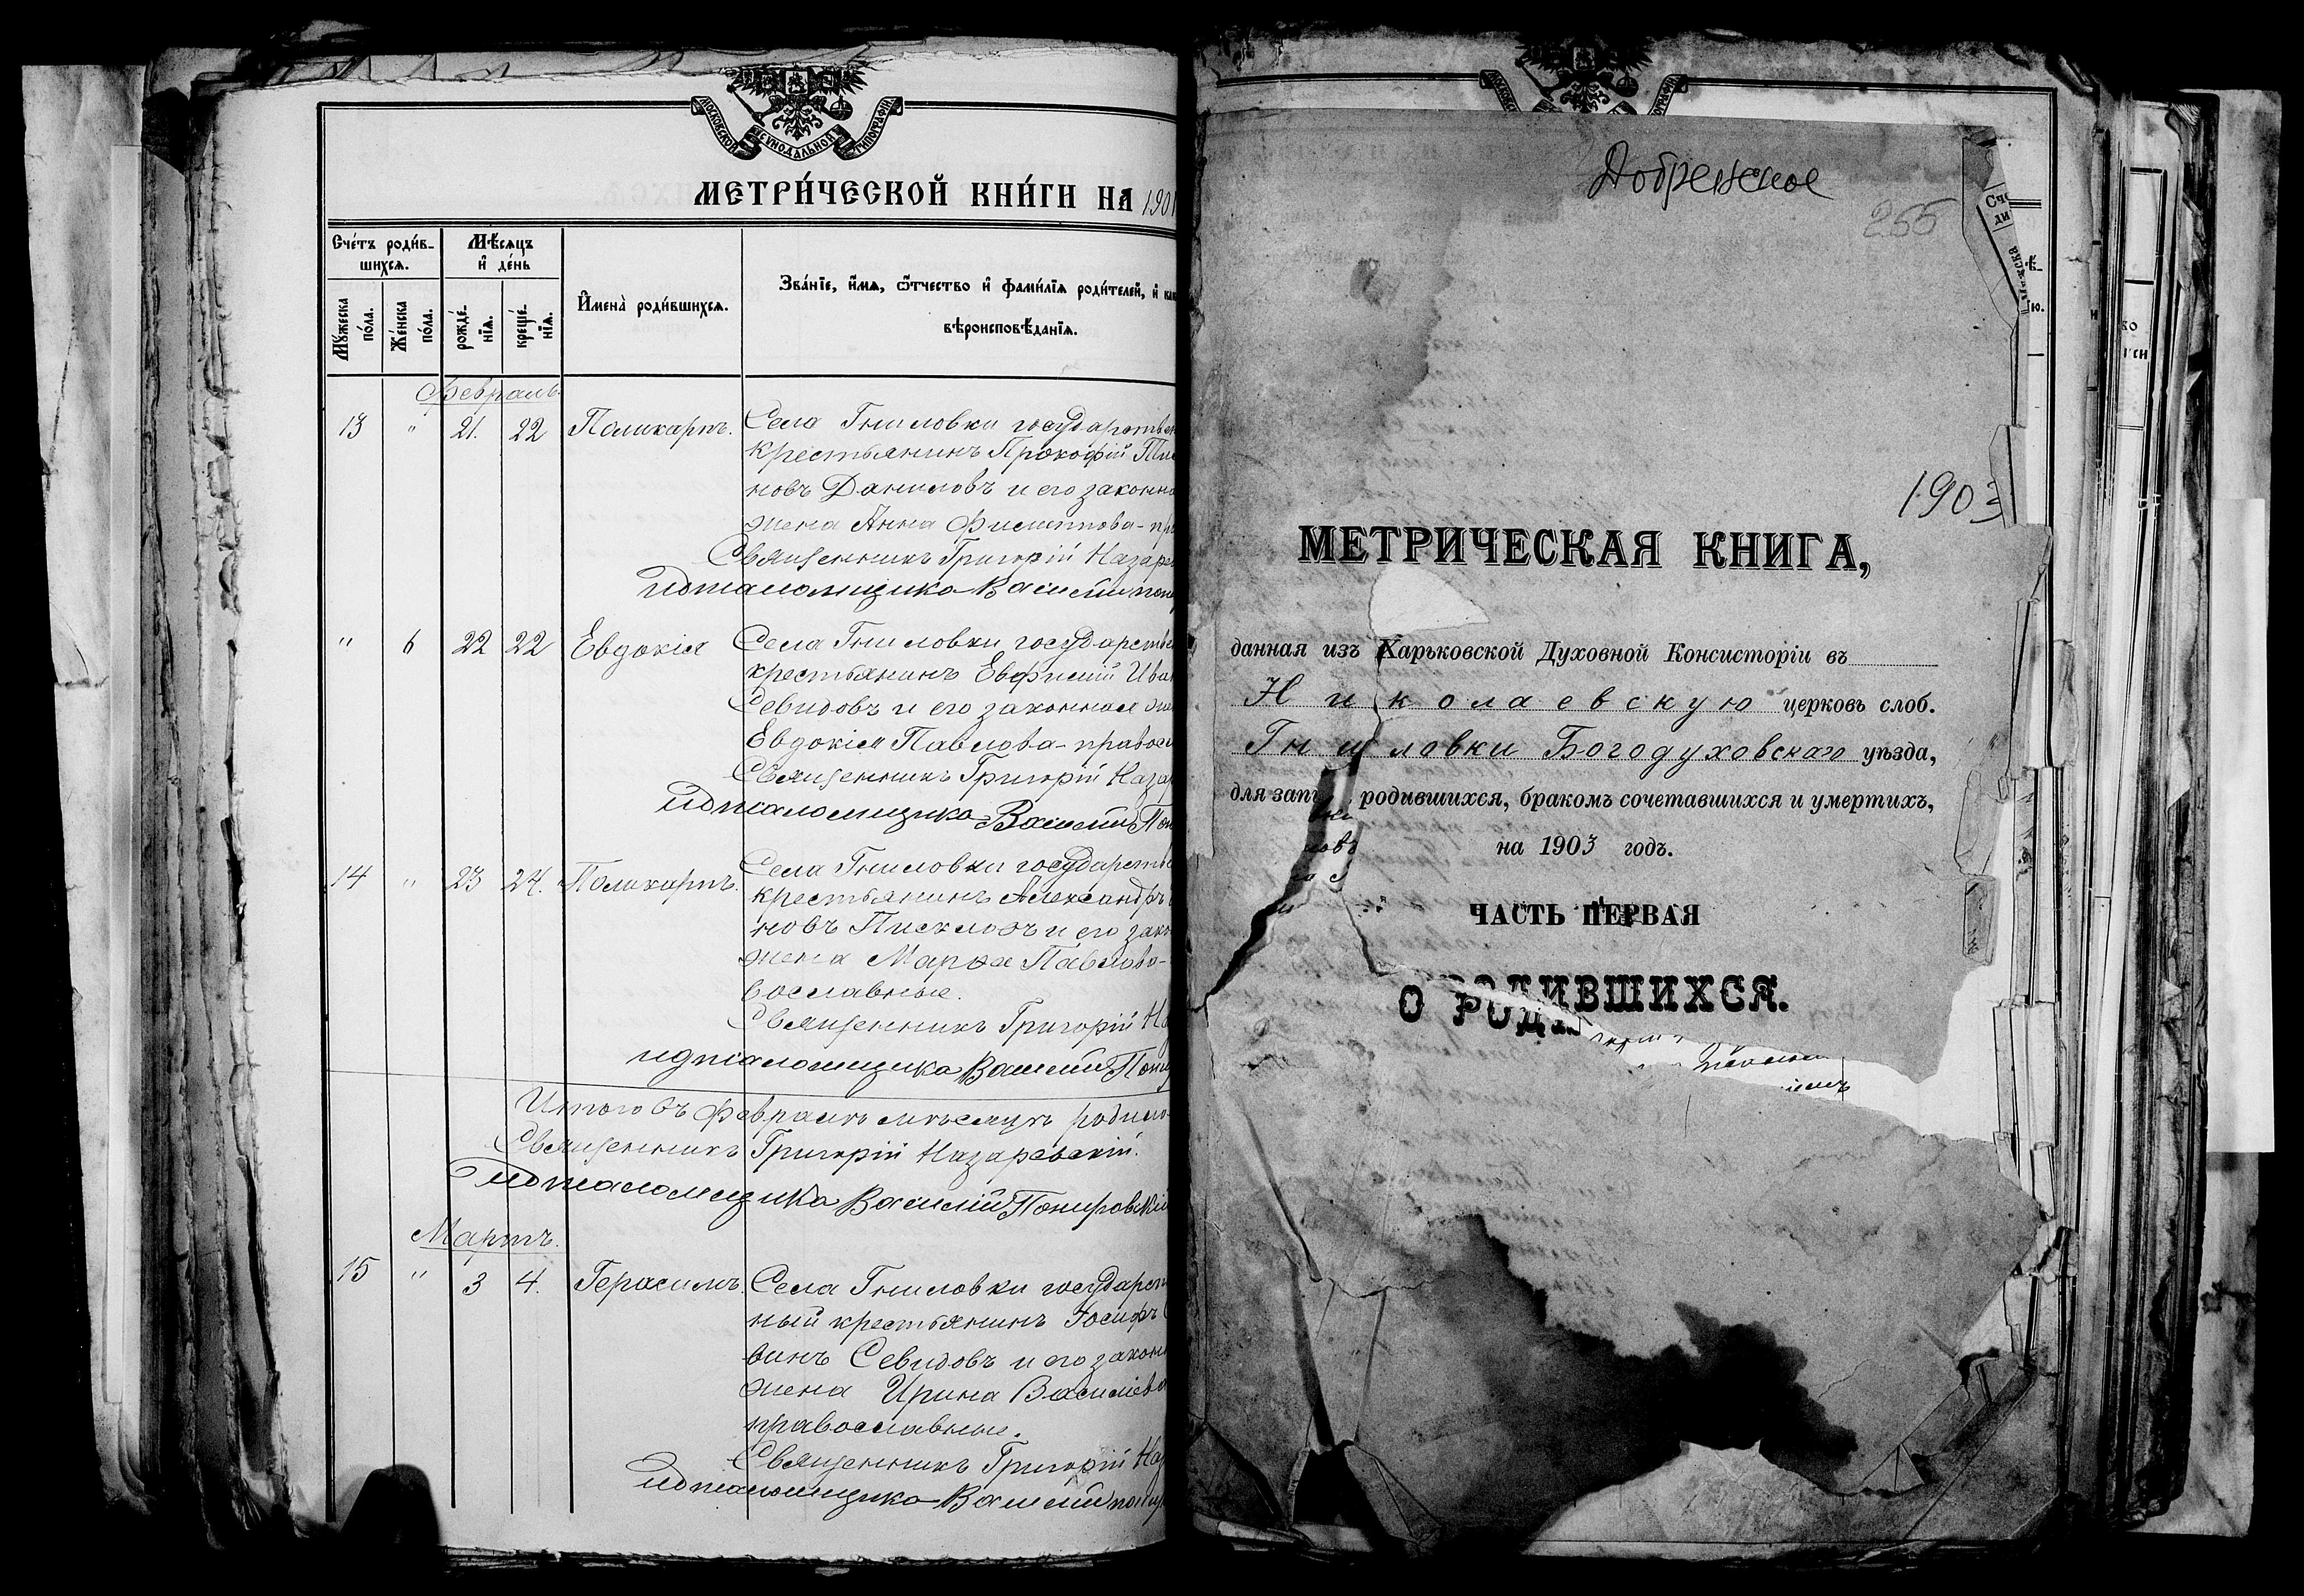 МОСКОВСКОЙ СѴНОДАЛЬНОЙ ТИПОГРАФІИ
МЕТРИ́ЧЕСКОЙ КНИ́ГИ НА 1901
Счéтъ роди́в-
шихся.
Мѣ́сяцъ
и҆ де́нь
Мꙋ́жеска
по́ла.
Же́нска
по́ла.
рожде́-
нїѧ.
креще́-
нїѧ.
И҆мена̀ роди́вшихся.
Зва́нїе, и҆́мѧ, ѻ҆́тчество и҆ фами́лїѧ роди́телей, и҆
вѣроисповѣ́данїѧ.
Февраль.
13 " 21. 22 Поликарпъ. Села Гниловки государствен
крестьянинъ Прокофій
новъ Даниловъ и его законна
жена Анна Филиппова - пр
Священникъ Григорій Назаре
Василій
" 6 22 22 Евдокія Села Гниловки государстве
крестьянинъ Евфимій Ива
Севидовъ и его законная же
Евдокія Павлова - правосл
Священникъ Григорій Наза
Василій
14 " 23 24. Поликарпъ. Села Гниловки государстве
крестьянинъ Александръ
новъ и его зако
жена Марѳа Павлова -
вославные.
Священникъ Григорій На
Василій
Итого въ Февралѣ мѣсяцѣ родило
Священникъ Григорій Назаревскій.
Василій Понировскій
Мартъ.
15 " 3 4. Герасимъ. Села Гниловки государст
ный крестьянинъ Іосифъ
винъ Севидовъ и его закон
жена Ирина Василіева
православные.
Священникъ Григорій Наз
Василій
Добренское
255
1903
МЕТРИЧЕСКАЯ КНИГА,
данная изъ Харьковской Духовной Консисторіи въ
Николаевскую церковь слоб.
Гниловки Богодуховскаго уѣзда,
для запи родившихся, бракомъ сочетавшихся и умертихъ,
на 1903 годъ.
ЧАСТЬ ПЕРВАЯ
О РОДИВШИХСЯ.